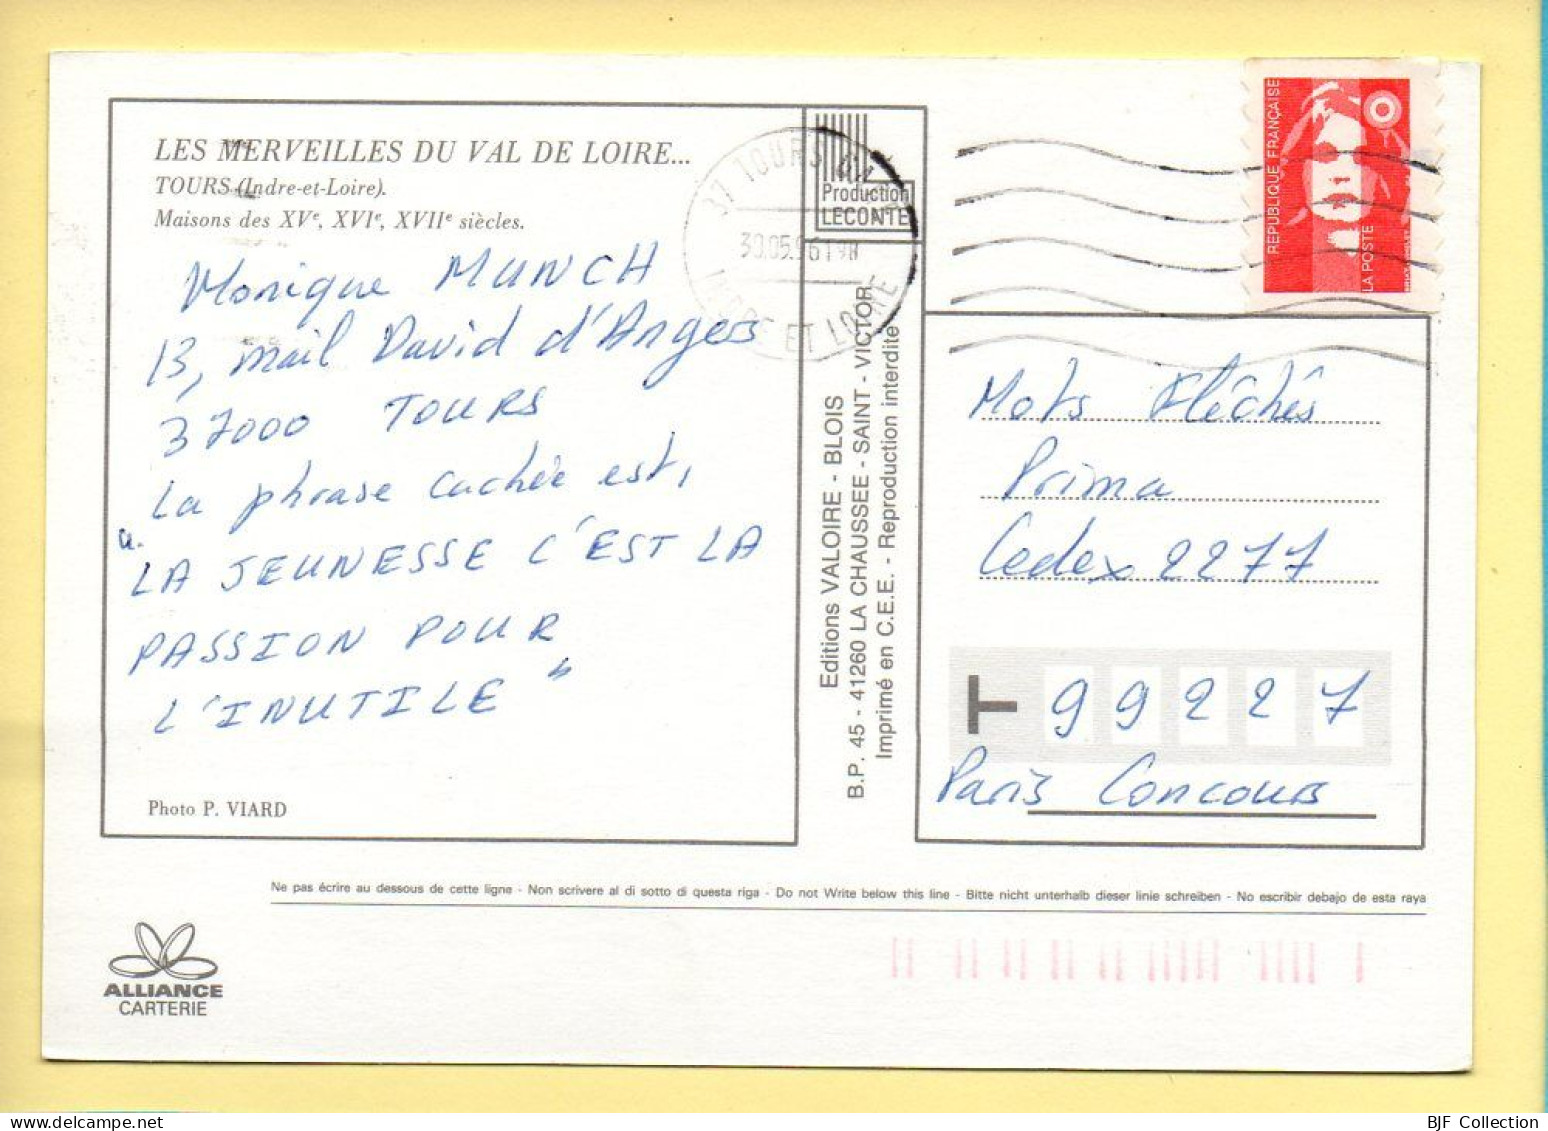 LES MERVEILLES DU VAL DE LOIRE...
TOURS (Indre-et-Loire).
Maisons des XVe, XVIe, XVIIe siècles.
Monique MUNCH
13, mail David d'Angers
37000 TOURS
La phrase cachée est,
"LA JEUNESSE C'EST LA
PASSION POUR
L'INUTILE"
Photo P. VIARD
ALLIANCE
CARTERIE
Production
LECONTE
37 TOURS
30.05.96
INDRE ET LOIRE
Editions VALOIRE - BLOIS
B.P. 45 - 41260 LA CHAUSSEE - SAINT - VICTOR
Imprimé en C.E.E. - Reproduction interdite
REPUBLIQUE FRANÇAISE
LA POSTE
Mots Fléchés
Prima
Cedex 2277
99227
Paris Concours
Ne pas écrire au dessous de cette ligne - Non scrivere al di sotto di questa riga - Do not Write below this line - Bitte nicht unterhalb dieser linie schreiben - No escribir debajo de esta raya
BJF Collection